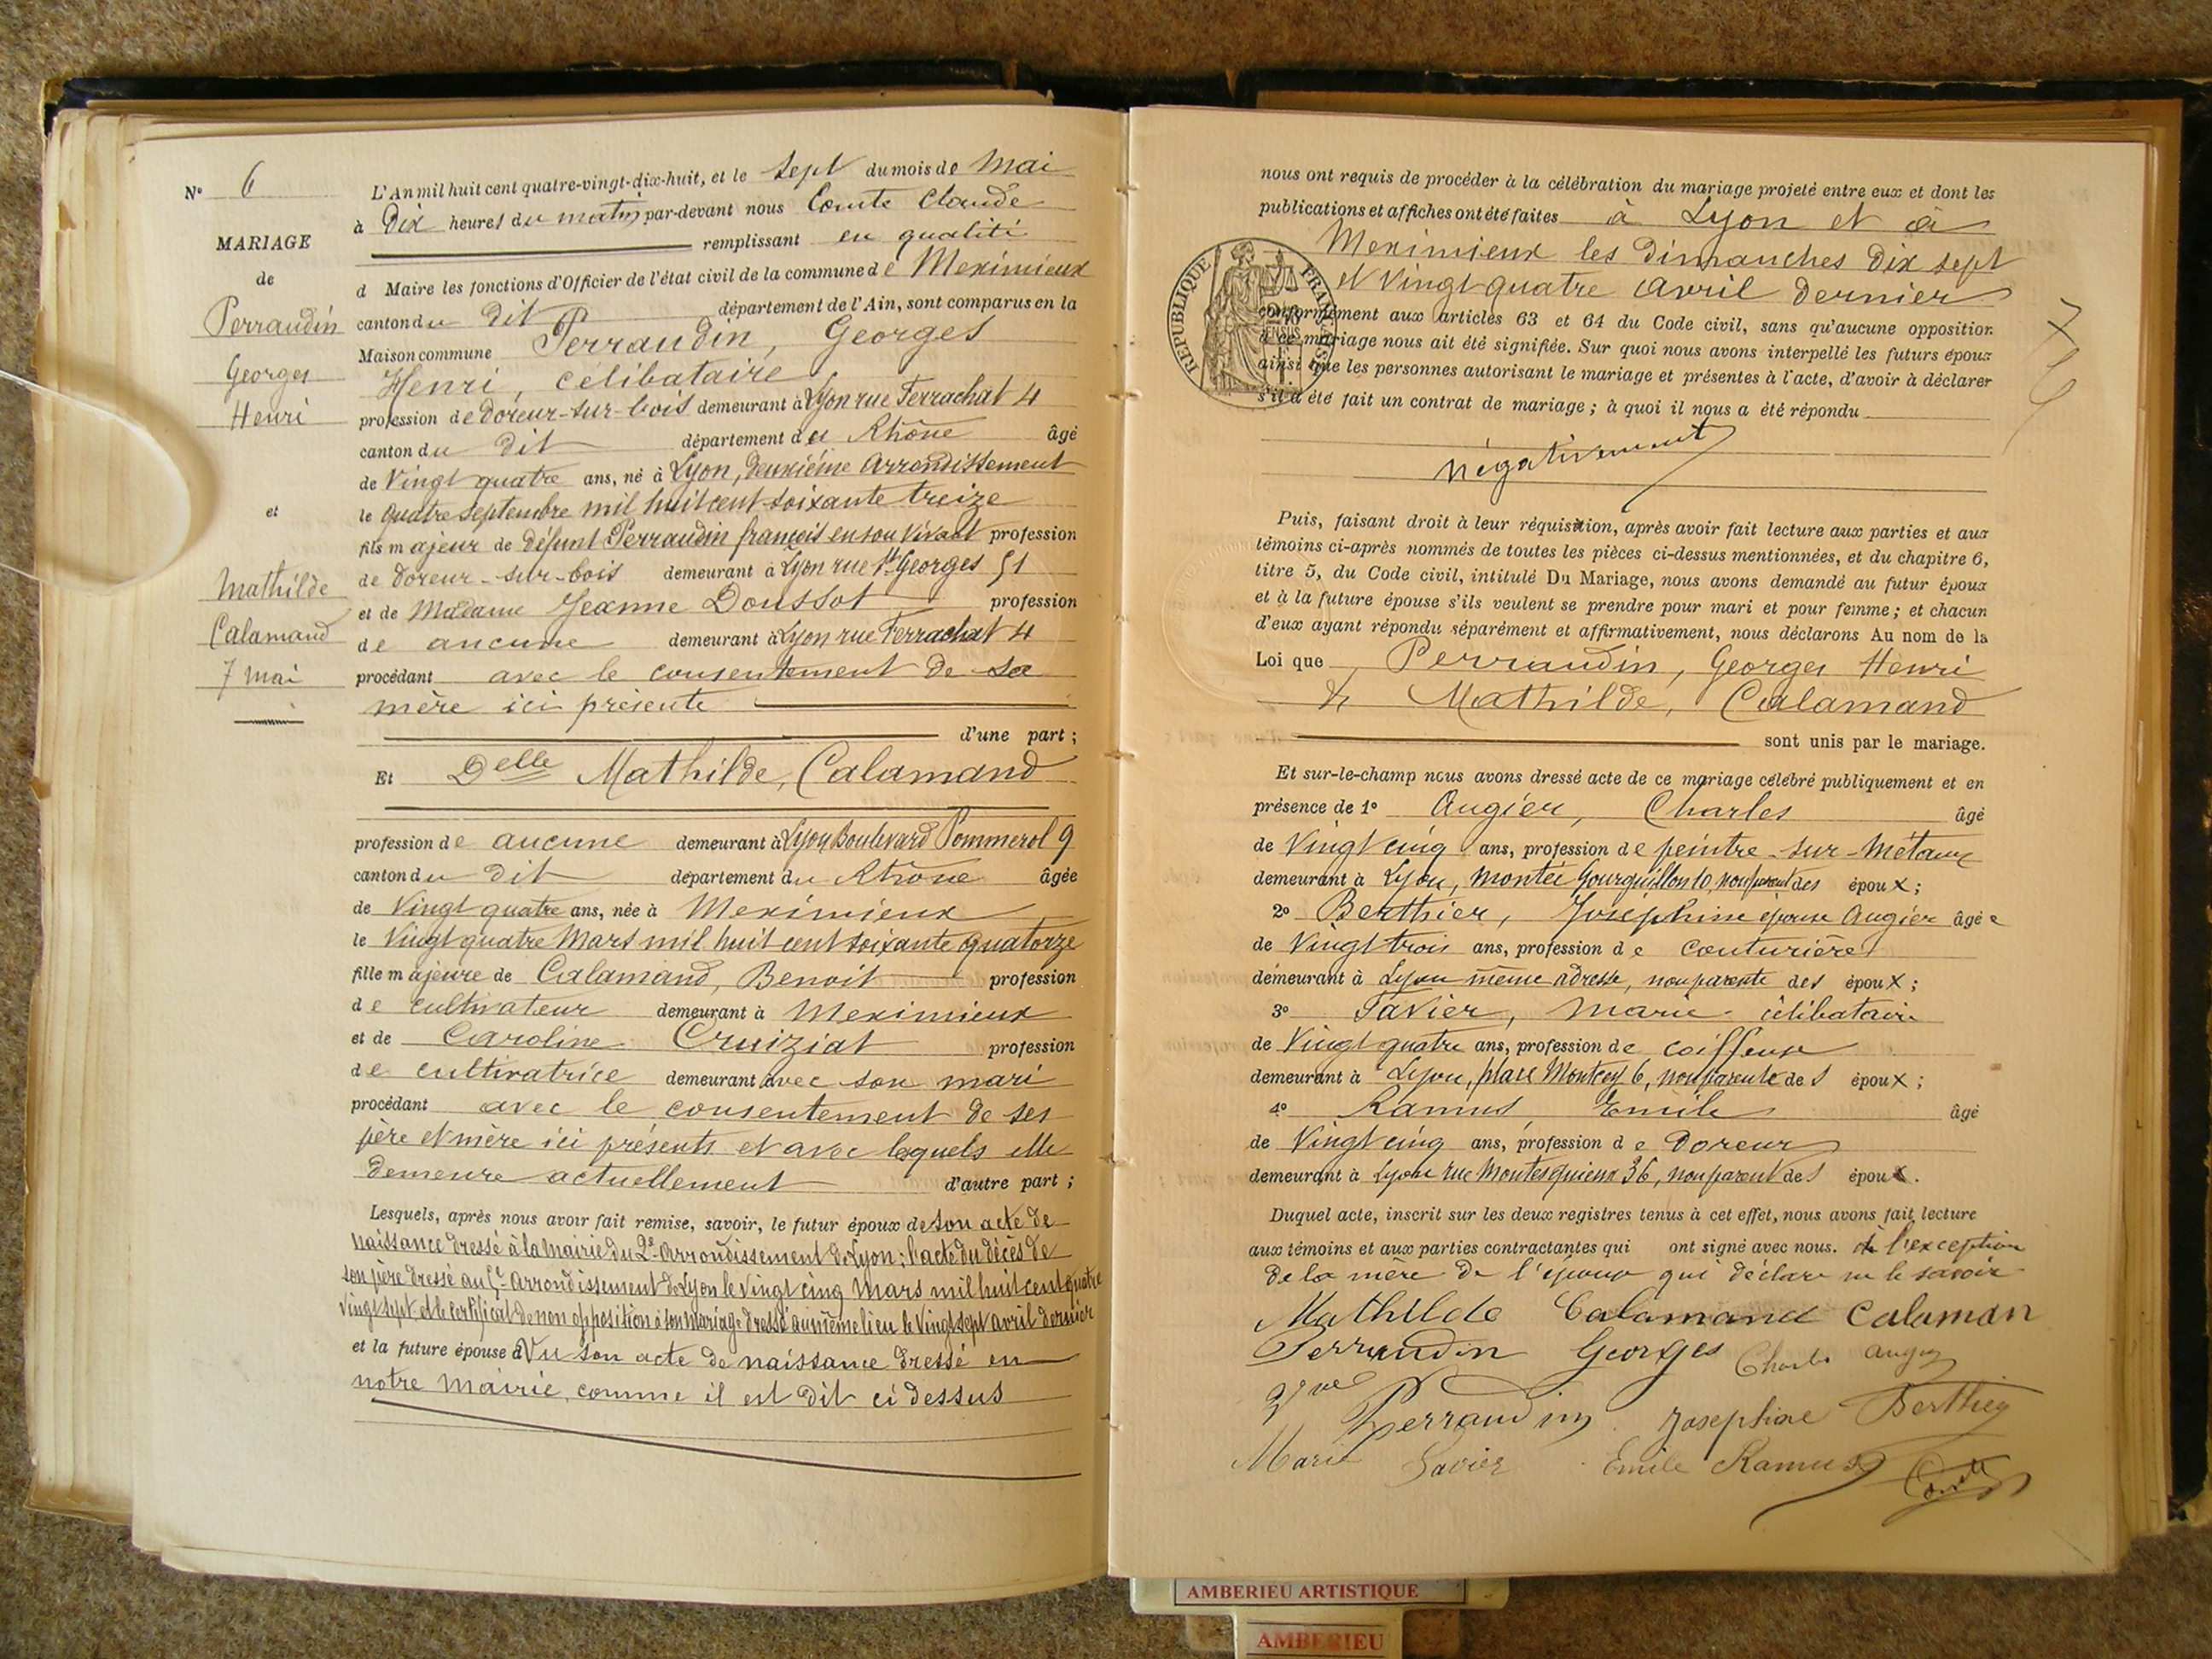 N° 6
MARIAGE
de
Perraudin
Georges
Henri
et
Mathilde
Calamand
7 mai
L'An mil huit cent quatre-vingt-dix-huit, et le sept du mois de Mai
à Dix heures du matin par-devant nous Comte Claude
remplissant en qualité
d Maire les fonctions d'Officier de l'état civil de la commune de Meximieux
canton du dit département de l'Ain, sont comparus en la
Maison commune Perraudin, Georges
Henri, célibataire
profession de Doreur-sur-bois demeurant à Lyon rue Ferrachat 4
canton du dit département du Rhône âgé
de Vingt quatre ans, né à Lyon, deuxième Arrondissement
le quatre septembre mil huit cent soixante treize
fils majeur de défunt Perraudin françois en son vivant profession
de Doreur-sur-bois demeurant à Lyon rue St Georges 51
et de Madame Jeanne Doussot profession
de aucune demeurant à Lyon rue Ferrachat 4
procédant avec le consentement de sa
mère ici présente
d'une part ;
Et Delle Mathilde, Calamand
profession de aucune demeurant à Lyon Boulevard Pommerol 9
canton du dit département du Rhône âgée
de Vingt quatre ans, née à Meximieux
le Vingt quatre Mars mil huit cent soixante quatorze
fille majeure de Calamand, Benoit profession
de cultivateur demeurant à Meximieux
et de Caroline Cruiziat profession
de cultivatrice demeurant avec son mari
procédant avec le consentement de ses
père et mère ici présents et avec lesquels elle
demeure actuellement d'autre part ;
Lesquels, après nous avoir fait remise, savoir, le futur époux de son acte de
naissance dressé à la mairie du 2e Arrondissement de Lyon ; l'acte du décès de
son père dressé au arrondissement de Lyon le vingt cinq Mars mil huit cent quatre
vingt sept et le certificat de non opposition à son mariage dressé au même lieu le Vingt sept avril dernier
et la future épouse Vu son acte de naissance dressé en
notre Mairie, comme il est dit ci dessus
nous ont requis de procéder à la célébration du mariage projeté entre eux et dont les
publications et affiches ont été faites à Lyon et à
Meximieux les dimanches dix sept
et Vingt quatre avril dernier
conformément aux articles 63 et 64 du Code civil, sans qu'aucune opposition
à ce mariage nous ait été signifiée. Sur quoi nous avons interpellé les futurs époux
ainsi que les personnes autorisant le mariage et présentes à l'acte, d'avoir à déclarer
s'il a été fait un contrat de mariage ; à quoi il nous a été répondu
négativement
RÉPUBLIQUE FRANÇAISE
Puis, faisant droit à leur réquisition, après avoir fait lecture aux parties et aux
témoins ci-après nommés de toutes les pièces ci-dessus mentionnées, et du chapitre 6,
titre 5, du Code civil, intitulé Du Mariage, nous avons demandé au futur époux
et à la future épouse s'ils veulent se prendre pour mari et pour femme ; et chacun
d'eux ayant répondu séparément et affirmativement, nous déclarons Au nom de la
Loi que Perraudin, Georges Henri
& Mathilde, Calamand
sont unis par le mariage.
Et sur-le-champ nous avons dressé acte de ce mariage célébré publiquement et en
présence de 1° Augier, Charles âgé
de Vingt cinq ans, profession de peintre-sur-Métaux
demeurant à Lyon, Montée Gourguillon 10, non parent des époux ;
2° Berthier, Joséphine épouse Augier âgée
de Vingt trois ans, profession de couturière
demeurant à Lyon même adresse, non parente des époux ;
3° Favier, Marie célibataire
de Vingt quatre ans, profession de coiffeuse
demeurant à Lyon, place Montrey 6, non parente des époux ;
4° Ramus Emile âgé
de Vingt cinq ans, profession de Doreur
demeurant à Lyon rue Montesquieu 36, non parent des époux.
Duquel acte, inscrit sur les deux registres tenus à cet effet, nous avons fait lecture
aux témoins et aux parties contractantes qui ont signé avec nous. à l'exception
de la mère de l'épouse qui déclare ne le savoir
Mathilde Calamand Calaman
Perraudin Georges Charles Augier
Vve Perraudin Josephine Berthier
Marie Favier Emile Ramus Comte
AMBERIEU ARTISTIQUE
AMBERIEU